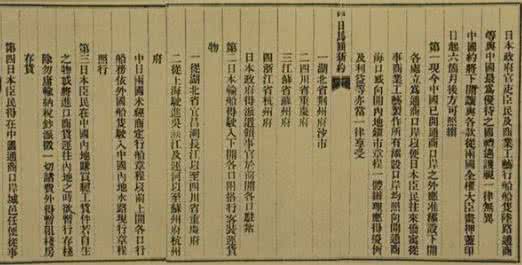 日本政府官吏臣民及商業工藝行船船隻陸路通商
等與中國最爲優待之國禮遇護視一律無異
中國約將下開讓與各款從兩國全權大臣畫押蓋印
日起六個月後方可照辦
第一現今中國已開通商口岸之外應准添設下開
各處立爲通商口岸以便日本臣民往來僑寓從
事商業工藝製作所有添設口岸均照向開通商
海口或向開內地鎮市章程一體辦理應得優例
及利益等亦當一律享受
日馬關新約
一湖北省荊州府沙市
二四川省重慶府
三江蘇省蘇州府
四浙江省杭州府
日本政府得派遣領事官於前開各口駐紮
第二日本輪船得駛入下開各口附搭行客裝運貨
物
從湖北省宜昌溯長江以至四川省重慶府
二從上海駛進吳淞江及運河以至蘇州府杭州
府
中日兩國未經商定行船章程以前上開各口行
船務依外國船隻駛入中國內地水路現行章程
照行
第三日本臣民在中國內地購買經工貨件若自生
之物或將進口商貨運往內地之時欲暫行存棧
除勿庸輸納稅鈔派徵一切諸費外得暫租棧房
存貨
第四日本臣民得在中國通商口岸城邑任便從事